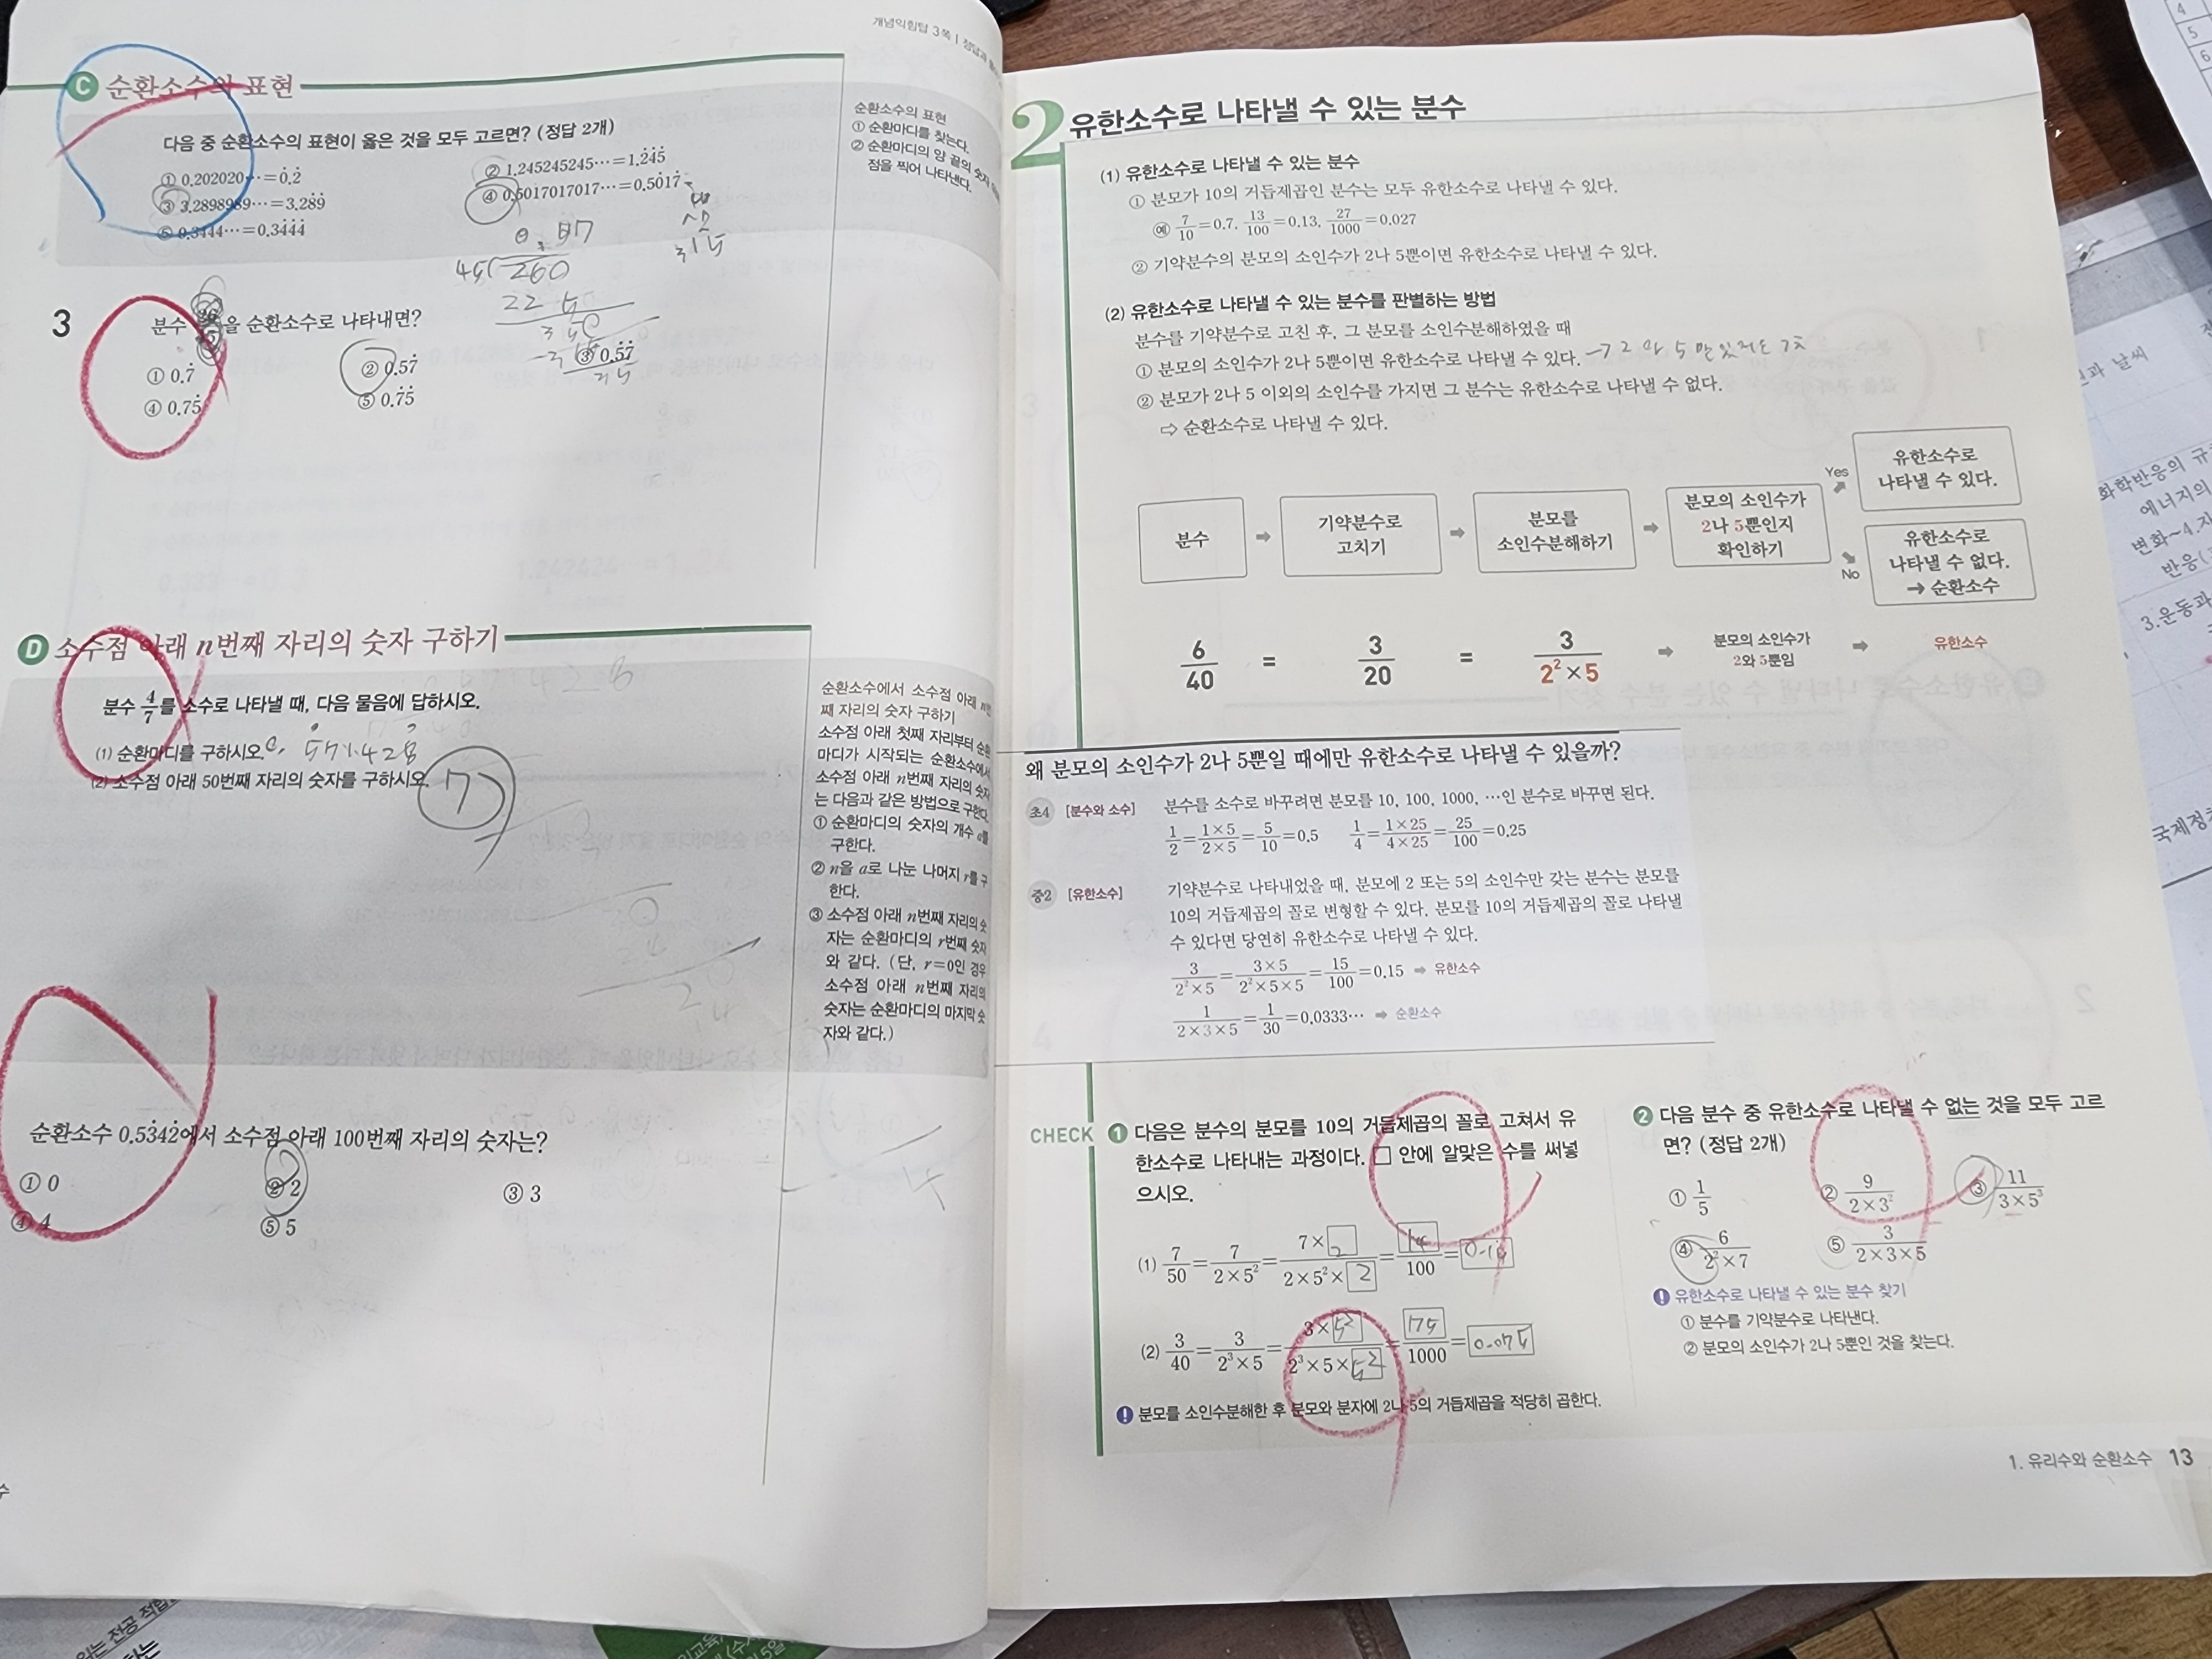 개념익힘탑 3쪽 | 정답과
C 순환소수의 표현
다음 중 순환소수의 표현이 옳은 것을 모두 고르면? (정답 2개)
① 0.202020⋯=0.2̇
② 1.245245245⋯=1.2̇4̇5̇
③ 3.2898989⋯=3.28̇9̇
④ 0.5017017017⋯=0.5017̇
⑤ 0.3444⋯=0.34̇4̇4̇
순환소수의 표현
① 순환마디를 찾는다.
② 순환마디의 양 끝의 숫자
점을 찍어 나타낸다.
45 260
22 5
3 분수 을 순환소수로 나타내면?
① 0.7̇
② 0.57̇
③ 0.5̇7̇
④ 0.75̇
⑤ 0.7̇5̇
D 소수점 아래 n번째 자리의 숫자 구하기
분수 4/7를 소수로 나타낼 때, 다음 물음에 답하시오.
(1) 순환마디를 구하시오. 0. 571428
(2) 소수점 아래 50번째 자리의 숫자를 구하시오. 7
순환소수에서 소수점 아래 n번
째 자리의 숫자 구하기
소수점 아래 첫째 자리부터 순환
마디가 시작되는 순환소수에서
소수점 아래 n번째 자리의 숫자
는 다음과 같은 방법으로 구한다.
① 순환마디의 숫자의 개수 a를
구한다.
② n을 a로 나눈 나머지 r를 구
한다.
③ 소수점 아래 n번째 자리의 숫
자는 순환마디의 r번째 숫자
와 같다. (단, r=0인 경우
소수점 아래 n번째 자리의
숫자는 순환마디의 마지막 숫
자와 같다.)
순환소수 0.53̇42̇에서 소수점 아래 100번째 자리의 숫자는?
① 0
② 2
③ 3
④ 4
⑤ 5
2 유한소수로 나타낼 수 있는 분수
(1) 유한소수로 나타낼 수 있는 분수
① 분모가 10의 거듭제곱인 분수는 모두 유한소수로 나타낼 수 있다.
예 7/10=0.7, 13/100=0.13, 27/1000=0.027
② 기약분수의 분모의 소인수가 2나 5뿐이면 유한소수로 나타낼 수 있다.
(2) 유한소수로 나타낼 수 있는 분수를 판별하는 방법
분수를 기약분수로 고친 후, 그 분모를 소인수분해하였을 때
① 분모의 소인수가 2나 5뿐이면 유한소수로 나타낼 수 있다.
② 분모가 2나 5 이외의 소인수를 가지면 그 분수는 유한소수로 나타낼 수 없다.
⇨ 순환소수로 나타낼 수 있다.
분수 ➡ 기약분수로 고치기 ➡ 분모를 소인수분해하기 ➡ 분모의 소인수가 2나 5뿐인지 확인하기
Yes 유한소수로 나타낼 수 있다.
No 유한소수로 나타낼 수 없다. → 순환소수
6/40 = 3/20 = 3/(2²×5) ➡ 분모의 소인수가 2와 5뿐임 ➡ 유한소수
왜 분모의 소인수가 2나 5뿐일 때에만 유한소수로 나타낼 수 있을까?
초4 [분수와 소수] 분수를 소수로 바꾸려면 분모를 10, 100, 1000, ⋯인 분수로 바꾸면 된다.
1/2=(1×5)/(2×5)=5/10=0.5 1/4=(1×25)/(4×25)=25/100=0.25
중2 [유한소수] 기약분수로 나타내었을 때, 분모에 2 또는 5의 소인수만 갖는 분수는 분모를
10의 거듭제곱의 꼴로 변형할 수 있다. 분모를 10의 거듭제곱의 꼴로 나타낼
수 있다면 당연히 유한소수로 나타낼 수 있다.
3/(2²×5)=(3×5)/(2²×5×5)=15/100=0.15 ➡ 유한소수
1/(2×3×5)=1/30=0.0333⋯ ➡ 순환소수
CHECK 1 다음은 분수의 분모를 10의 거듭제곱의 꼴로 고쳐서 유
한소수로 나타내는 과정이다. □ 안에 알맞은 수를 써넣
으시오.
(1) 7/50=7/(2×5²)=(7×2)/(2×5²×2)=14/100=0.14
(2) 3/40=3/(2³×5)=(3×5²)/(2³×5×5²)=175/1000=0.075
! 분모를 소인수분해한 후 분모와 분자에 2나 5의 거듭제곱을 적당히 곱한다.
2 다음 분수 중 유한소수로 나타낼 수 없는 것을 모두 고르
면? (정답 2개)
① 1/5
② 9/(2×3²)
③ 11/(3×5³)
④ 6/(2²×7)
⑤ 3/(2×3×5)
! 유한소수로 나타낼 수 있는 분수 찾기
① 분수를 기약분수로 나타낸다.
② 분모의 소인수가 2나 5뿐인 것을 찾는다.
1. 유리수와 순환소수 13
화학반응의 규
에너지의
변화~4.
반응
3.운동과
국제정